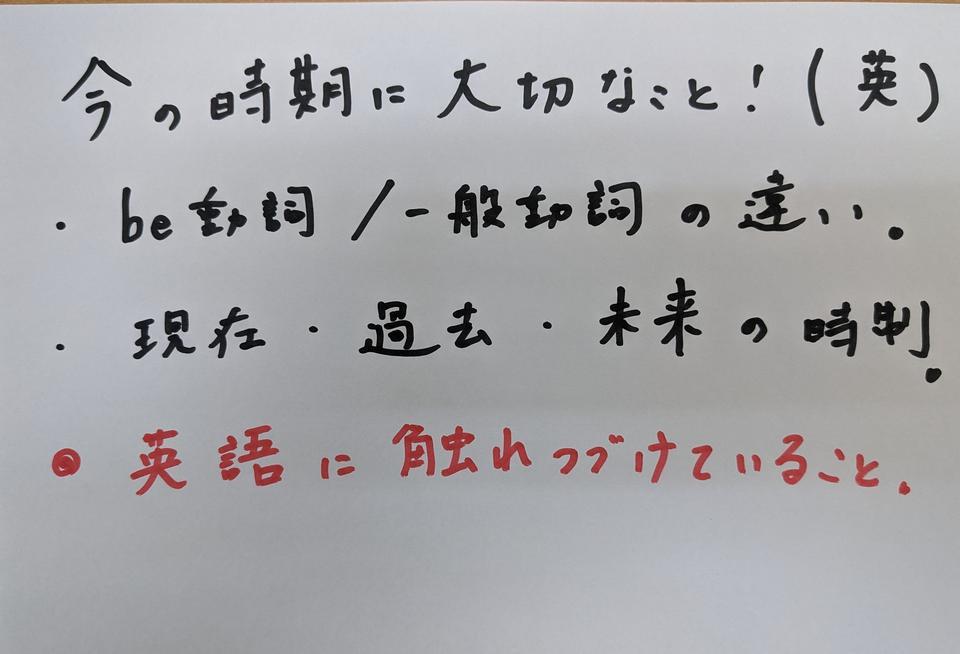 今の時期に大切なこと！（英）
・be動詞／一般動詞の違い.
・現在・過去・未来の時制.
◎英語に触れつづけていること.